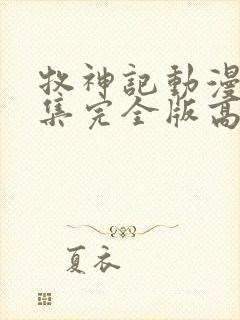 牧神記動漫
集完全版高
夏衣